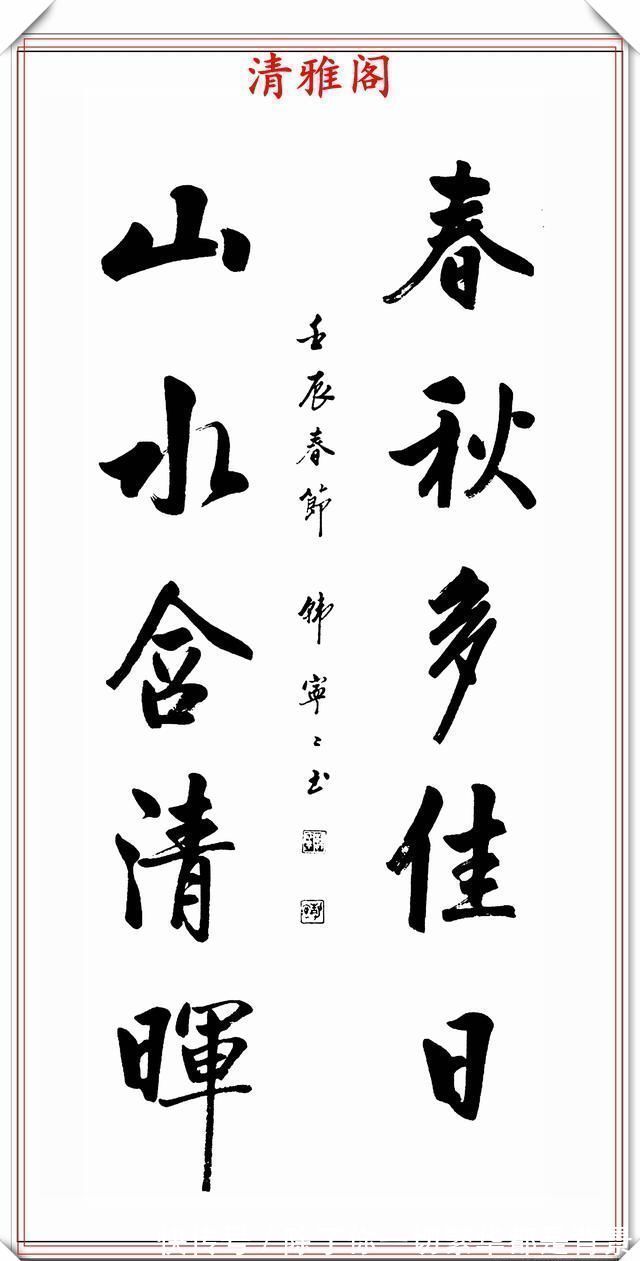 清雅阁
春秋多佳日
山水含清暉
壬辰春節 韩寧寧书